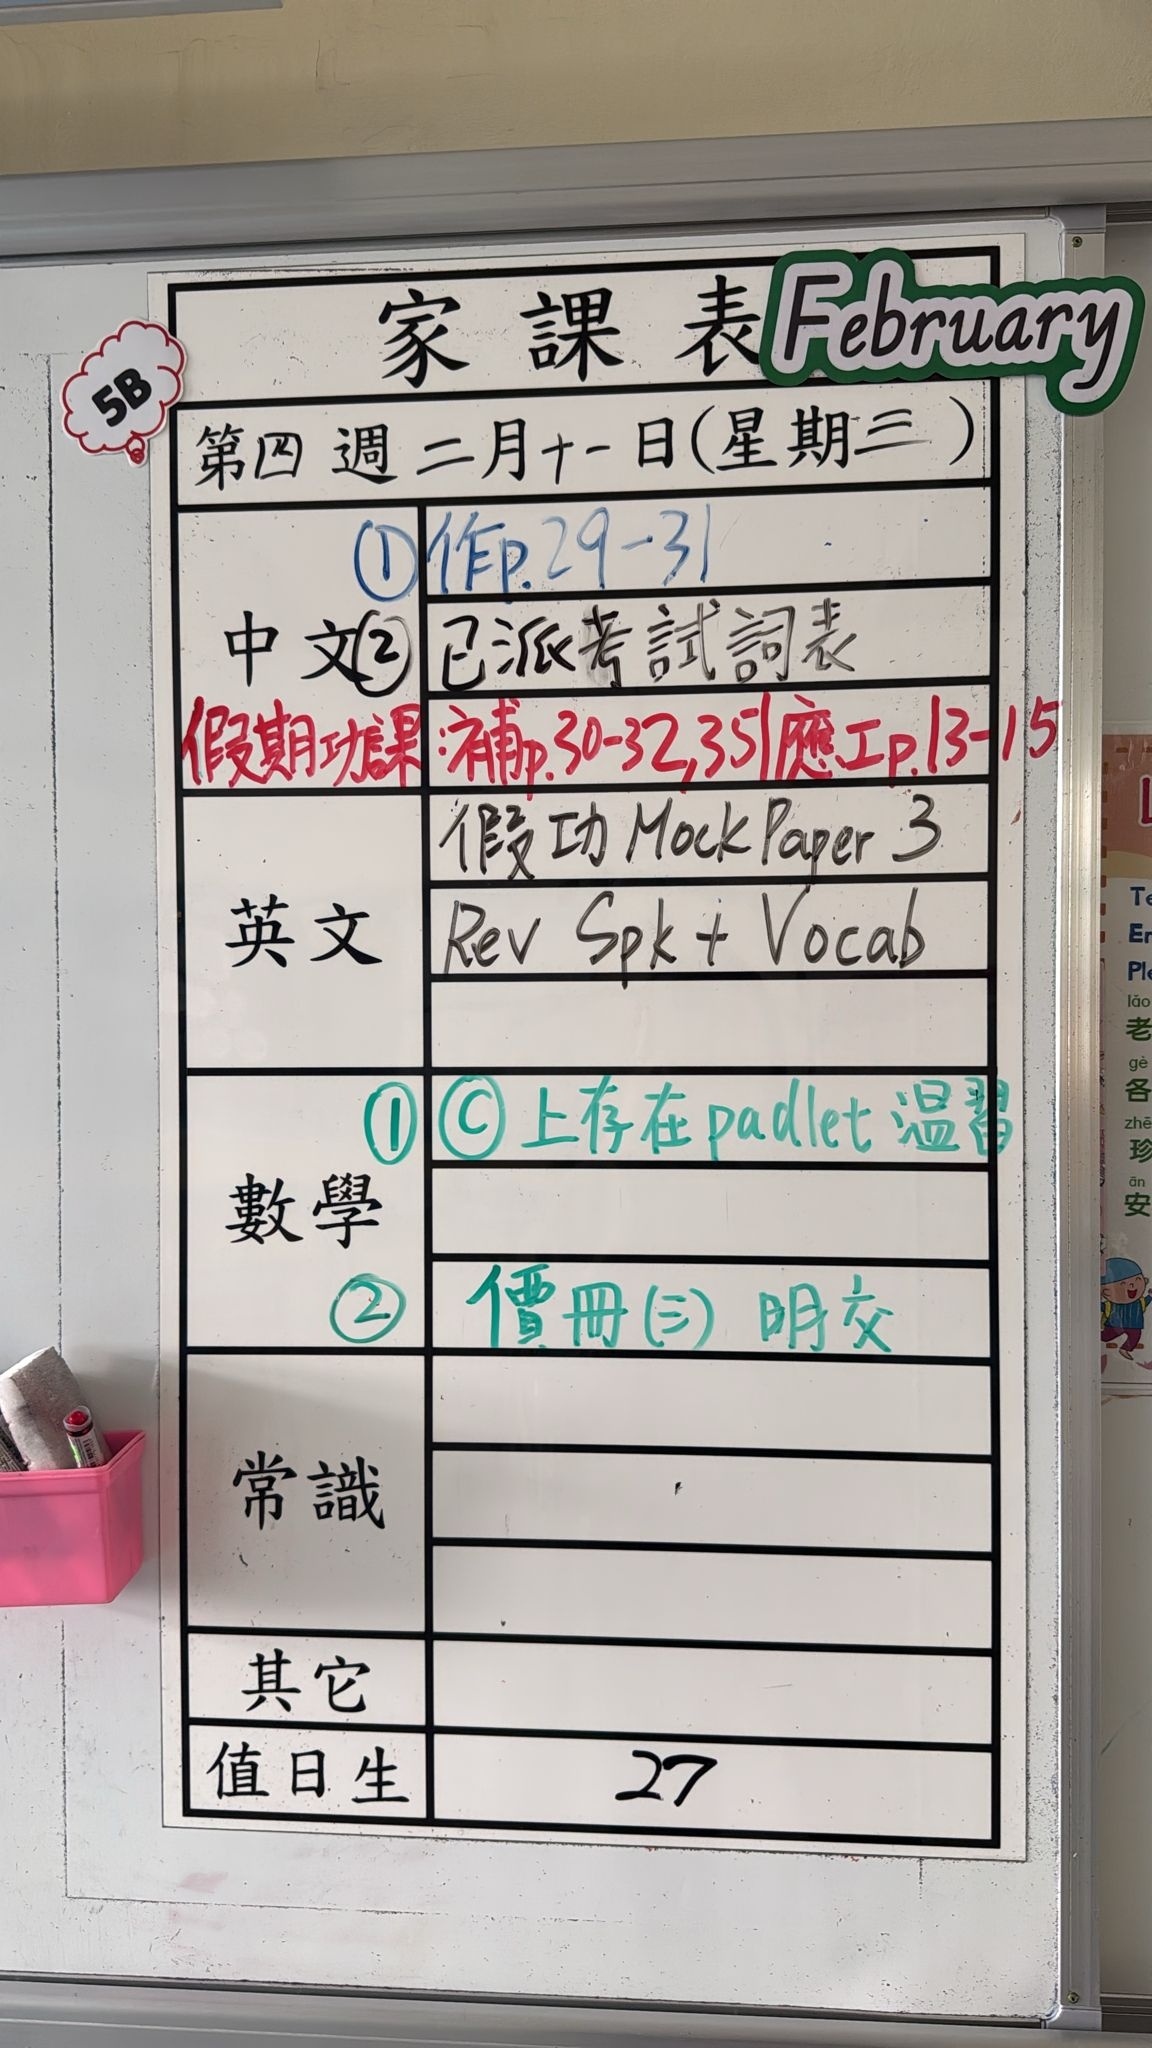 家課表 February
5B
第四週 二月十一日(星期三)
中文
① 作p.29-31
② 已派考試詞表
假期功課:補p.30-32,35|應工p.13-15
英文
假功 Mock Paper 3
Rev Spk + Vocab
數學
① Ⓒ 上存在padlet 温習
② 價冊(三) 明交
常識
其它
值日生 27
Te
En
Ple
lǎo
老
gè
各
zhē
珍
ān
安